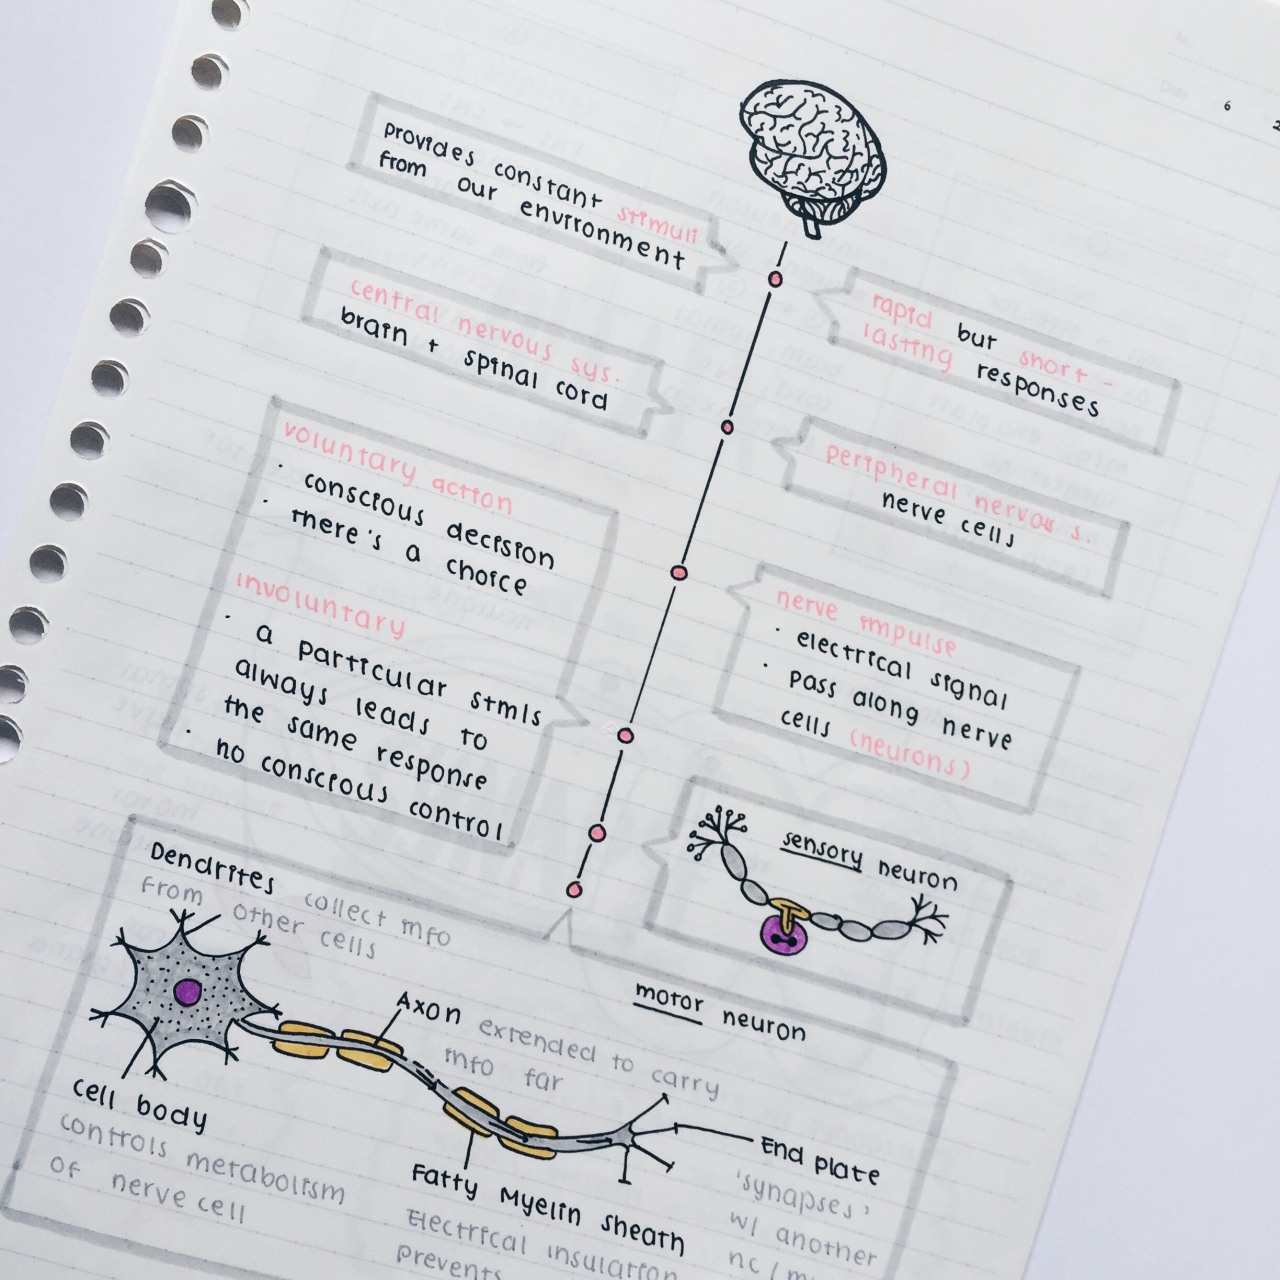 6
provides constant stimuli
from our environment
rapid but short-
lasting responses
central nervous sys.
brain + spinal cord
peripheral nervous s.
nerve cells
voluntary action
· conscious decision
· there's a choice
involuntary
· a particular stmls
always leads to
the same response
· no conscious control
nerve impulse
· electrical signal
· pass along nerve
cells (neurons)
sensory neuron
motor neuron
Dendrites collect info
from other cells
Axon extended to carry
info far
cell body
controls metabolism
of nerve cell
End plate
'synapses'
w/ another
nc / m
Fatty Myelin sheath
Electrical insulation
prevents